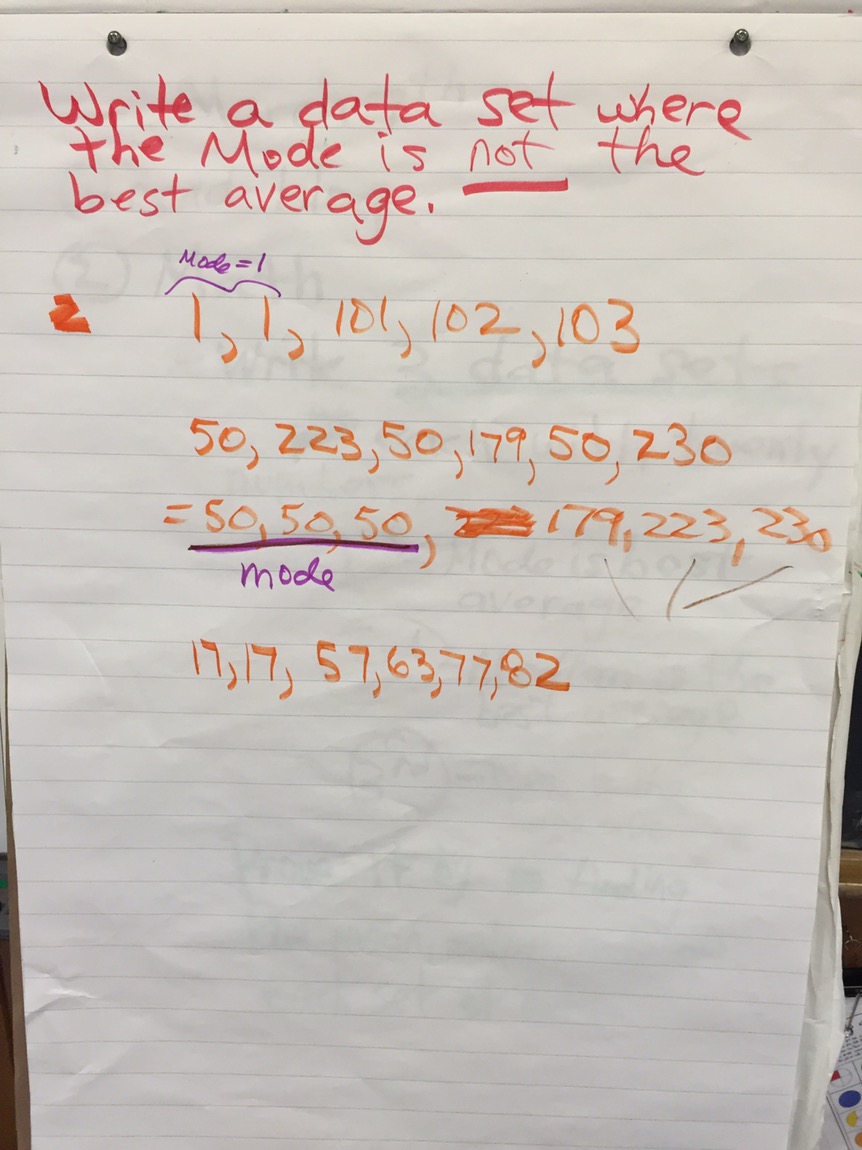 Write a data set where
the Mode is not the
best average.
Mode=1
1, 1, 101, 102, 103
50, 223, 50, 179, 50, 230
=50, 50, 50, 179, 223, 230
mode
17, 17, 57, 63, 77, 82